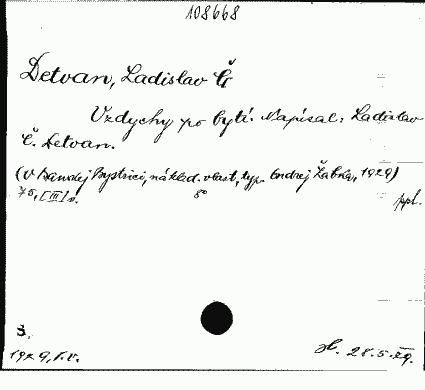 108668
Detvan, Ladislav Č
Vzdychy po bytí. Napísal: Ladislav
Č. Detvan.
(V Banskej Bystrici, náklad. vlast., typ. Ondrej Žabka, 1929)
75, [III] s. 8° ppl.
S.
1929, F.V. 28.5.29.